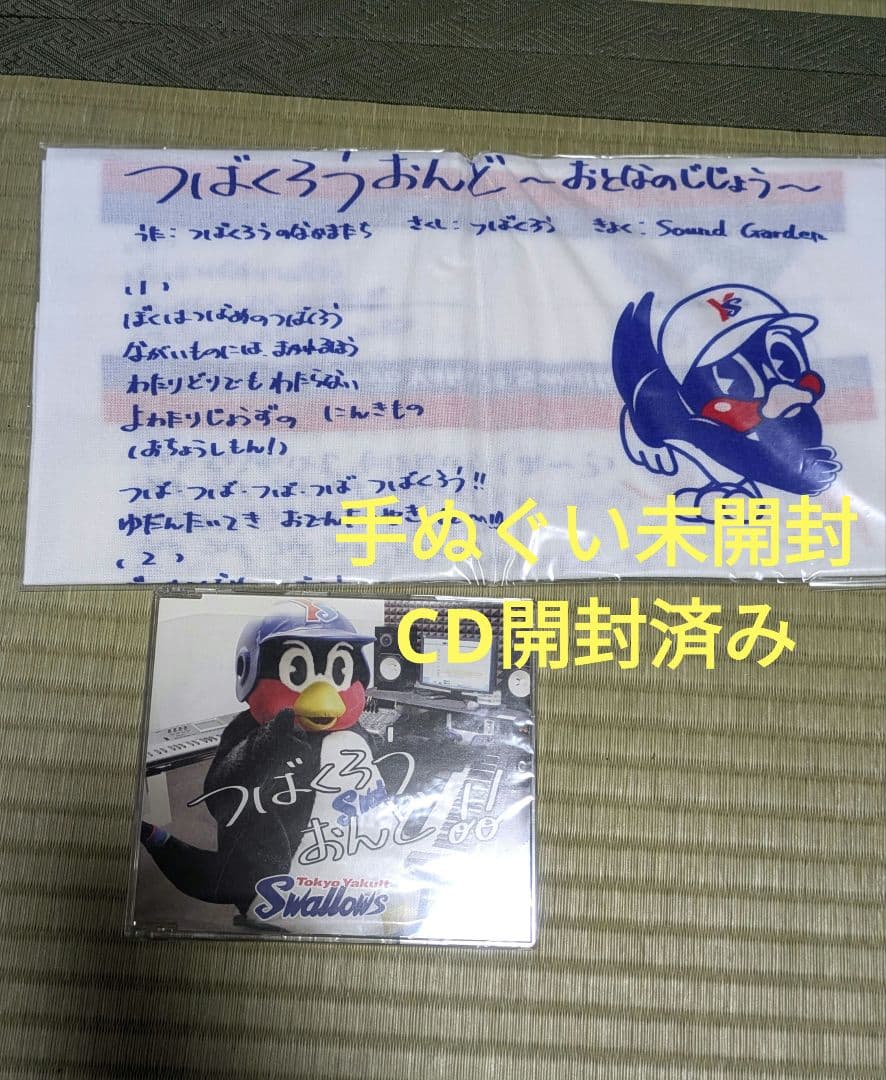 つばくろうおんど～おとなのじじょう～
うた：つばくろうのなかまたち　さくし：つばくろう　きょく：Sound Garden
(1)
ぼくはつばめのつばくろう
ながいものには、まかれるほう
わたりどりでも わたらない
よわたりじょうずの にんきもの
(おちょうしもん！)
つば・つば・つば・つば つばくろう!!
ゆだんたいてき おでんだ
(2)
Ys
手ぬぐい未開封
CD開封済み
Ys
つばくろう
おんど!!
Tokyo Yakult
Swallows